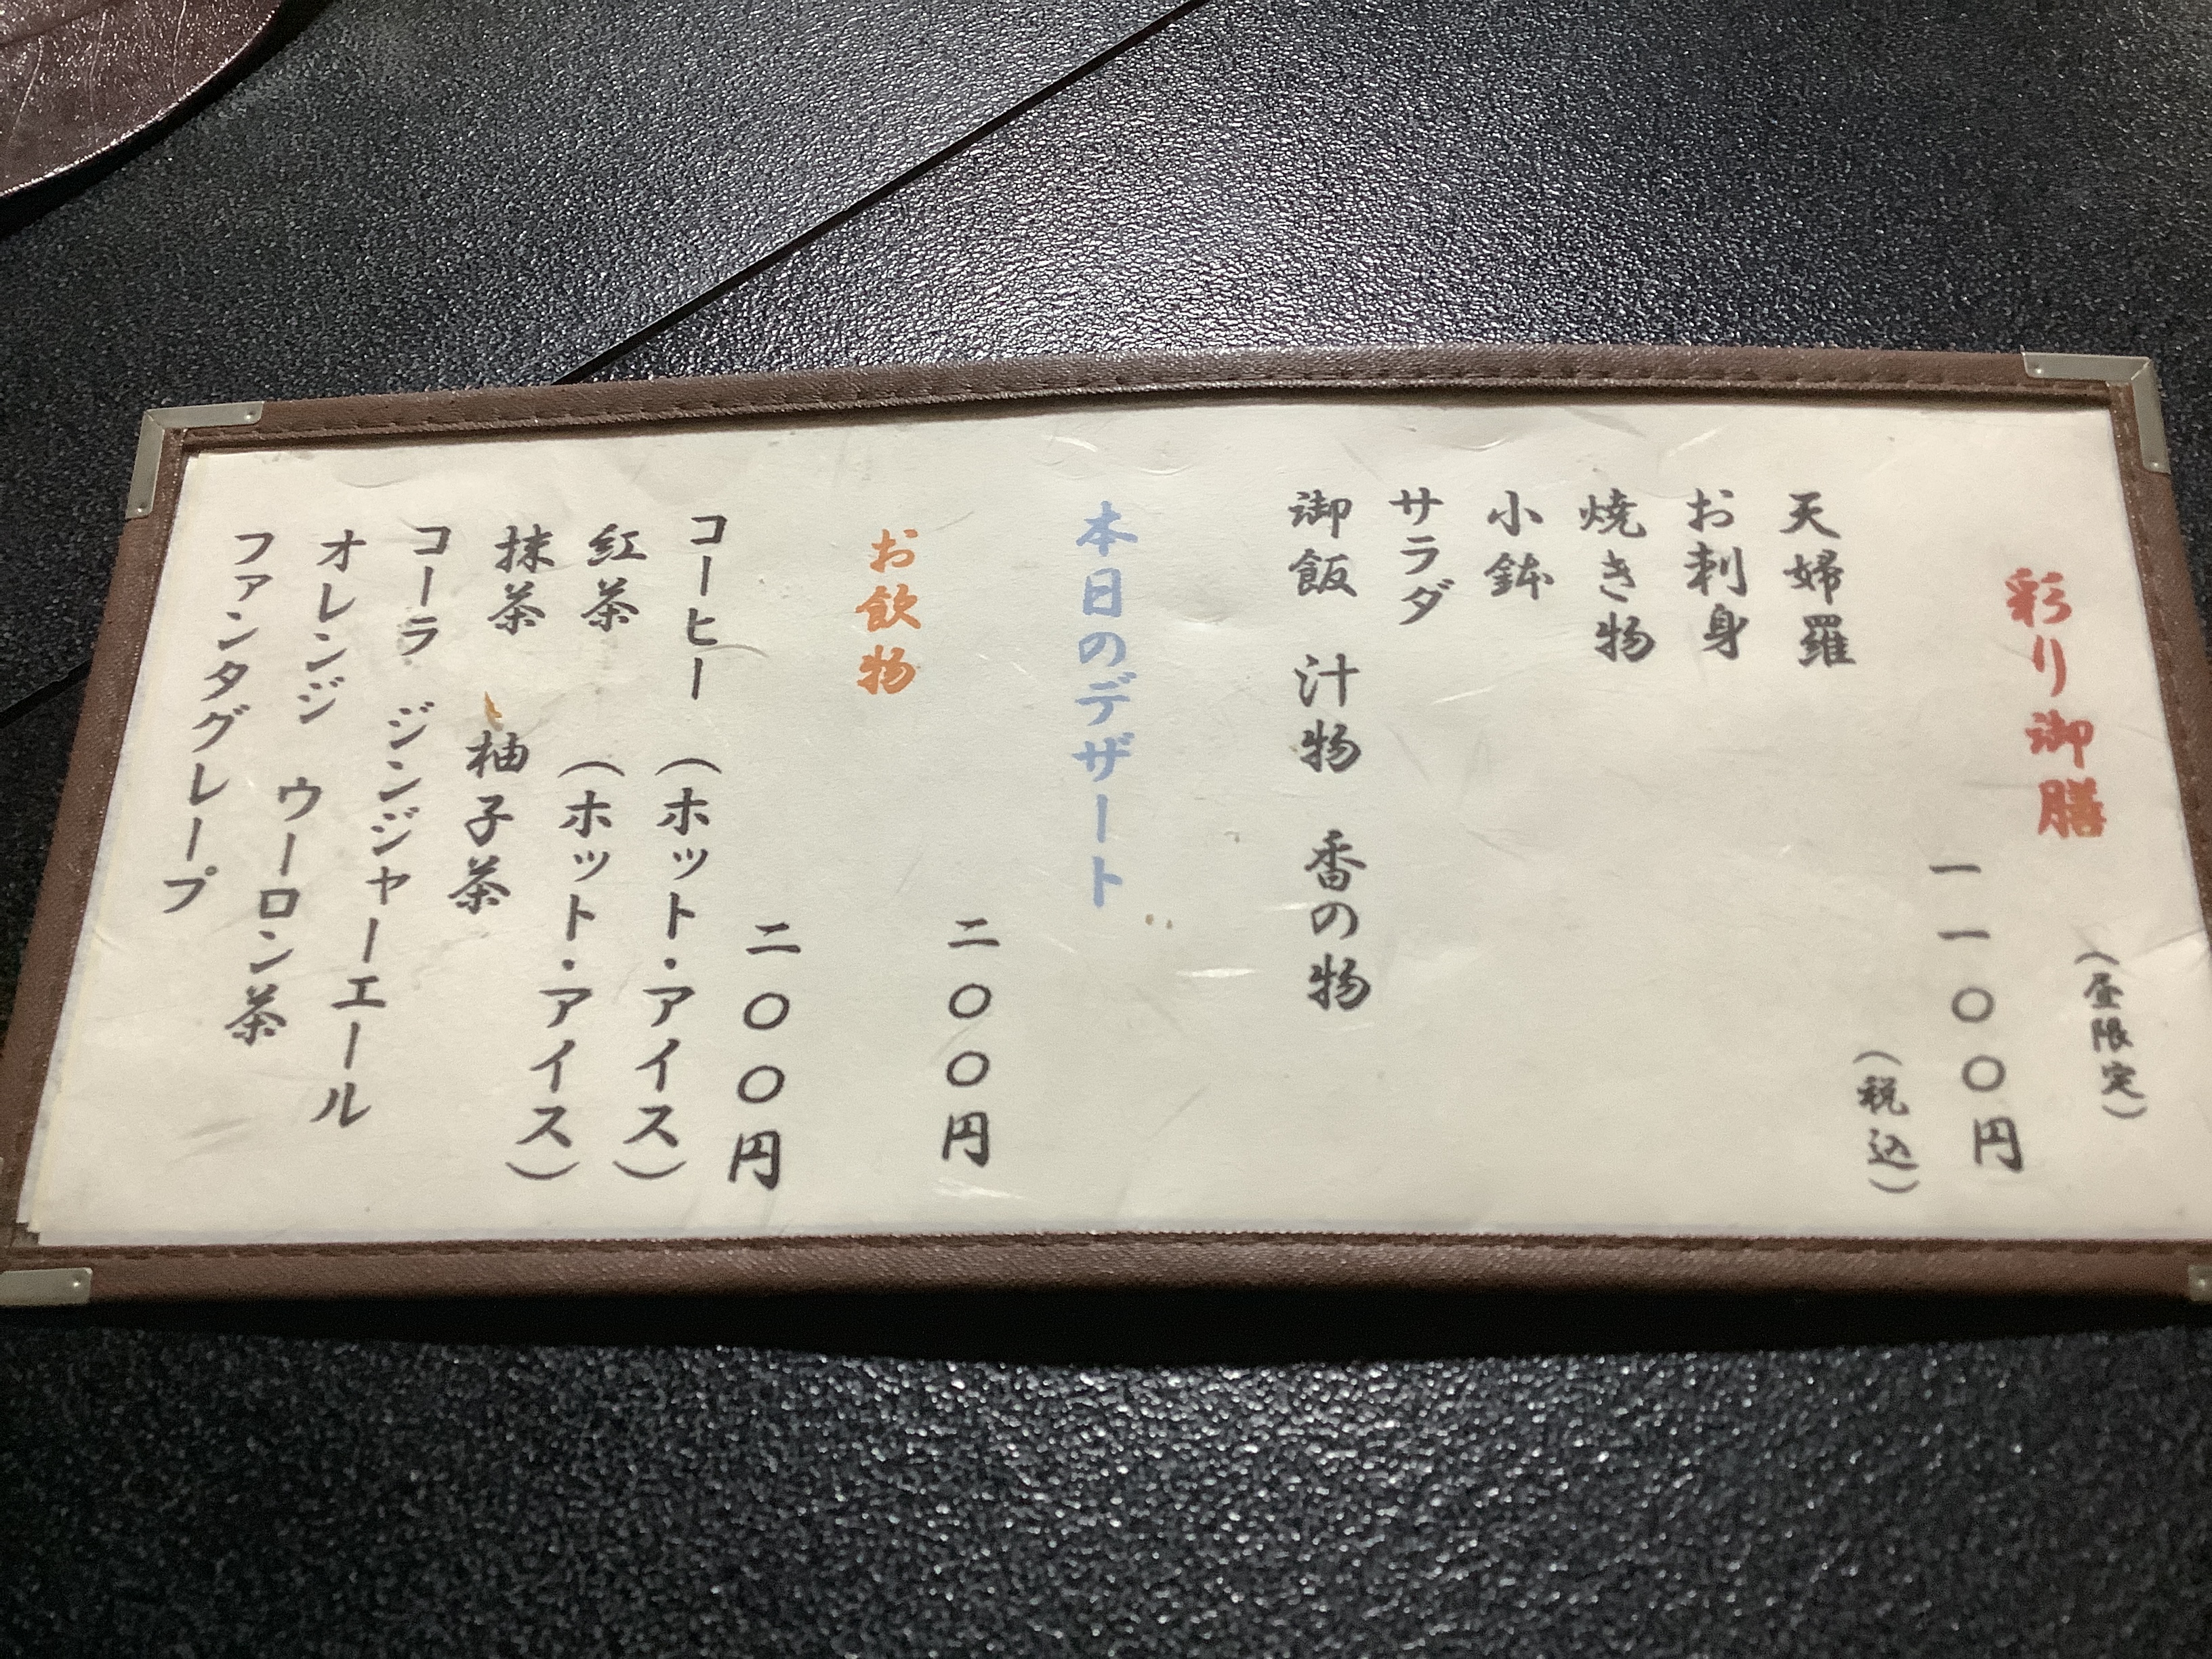 彩り御膳 (昼限定)
一一〇〇円
(税込)
天婦羅
お刺身
焼き物
小鉢
サラダ
御飯 汁物 香の物
本日のデザート
二〇〇円
お飲物
二〇〇円
コーヒー (ホット・アイス)
紅茶 (ホット・アイス)
抹茶 柚子茶
コーラ ジンジャーエール
オレンジ ウーロン茶
ファンタグレープ